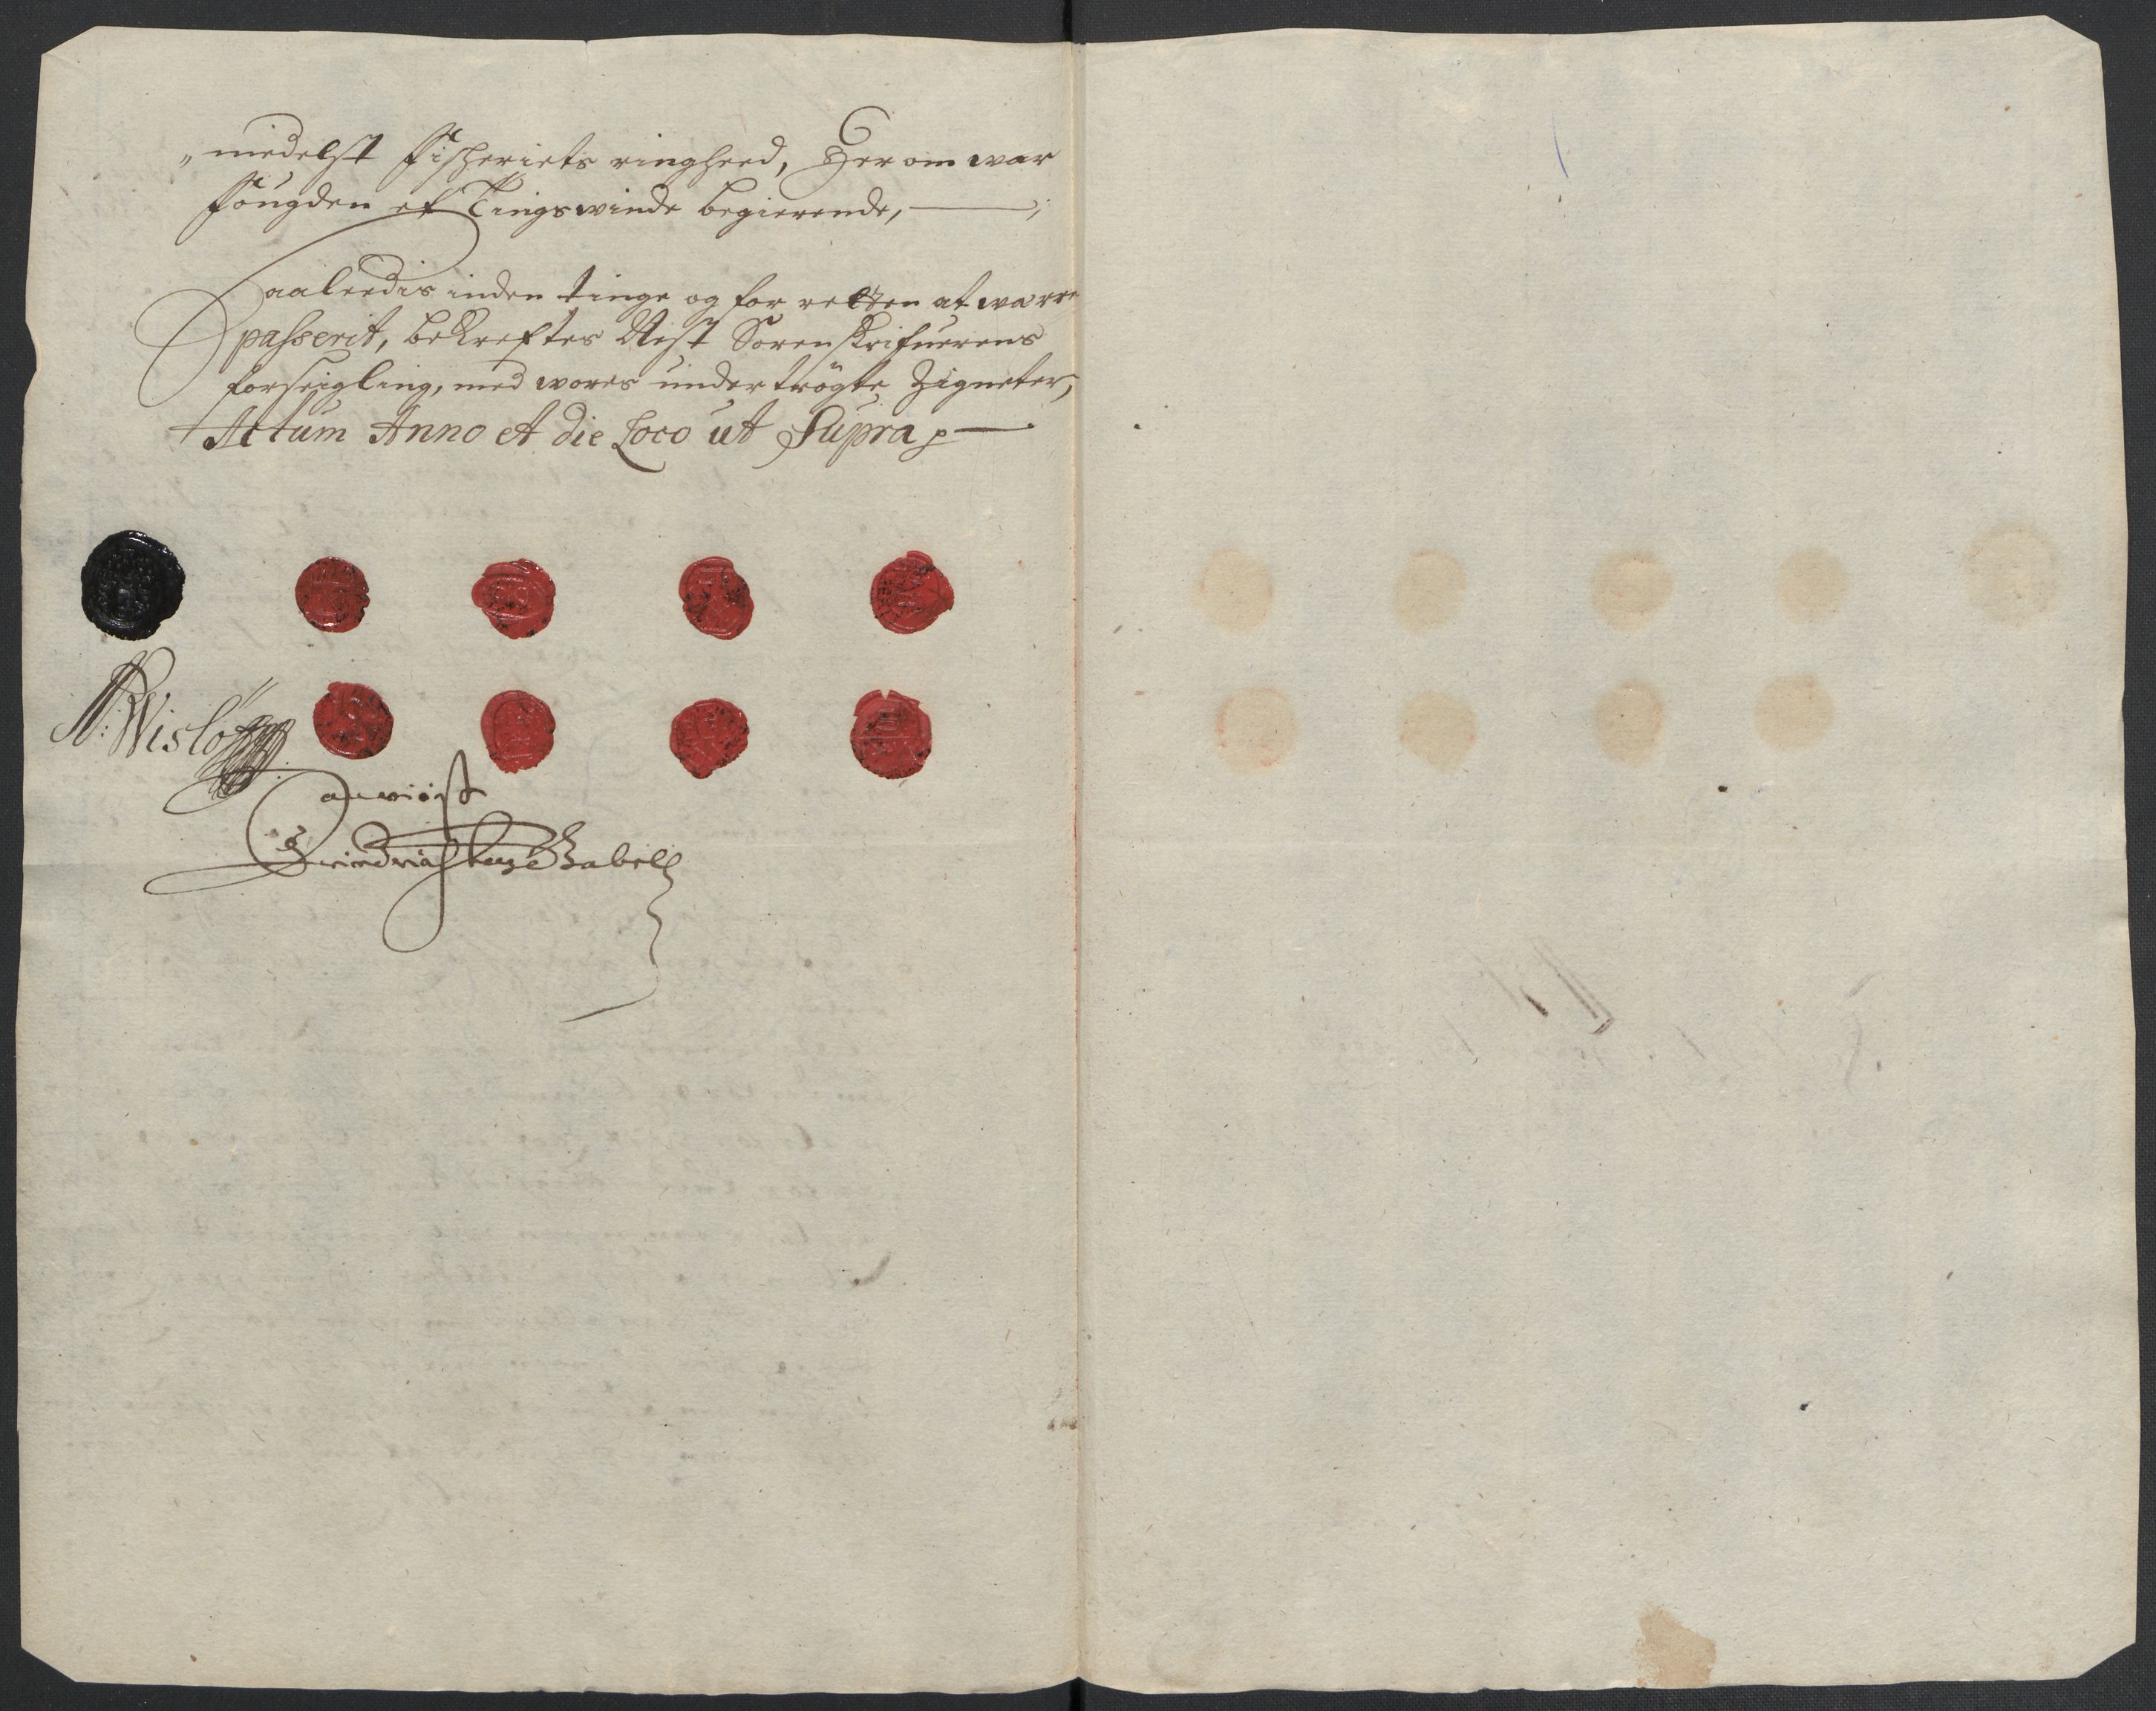 „midelst Fischeriets ringheed, Her om war
Fougden et Tingswinde begierende,
Saaleedis inden tinge og for retten at were
passerit, bekreftes Nest Sorenskrifuerens
forseigling, med wores undertrögte Zigneter,
Actum Anno et die Loco ut Supra
N: Wislöf
anviist